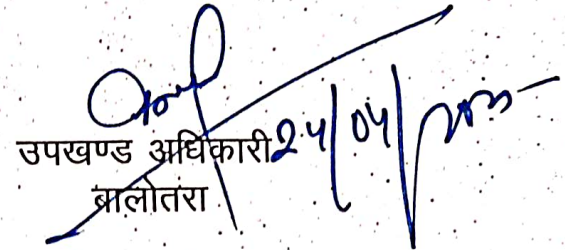 उपखण्ड अधिकारी 24/04/
बालोतरा